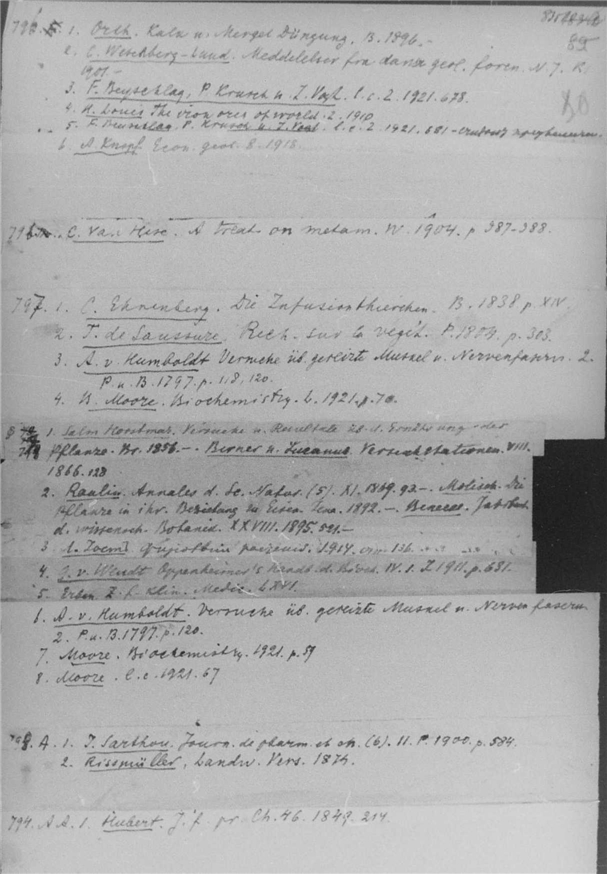 85
796. 1. Orth. Kalk u. Mergel Düngung. B. 1896.-
2. C. Wesenberg-Lund. Meddelelser fra dansk geol. foren. N. 7. K.
1901.-
3. F. Beyschlag, P. Krusch u. J. Vogt. l. c. 2. 1921. 673.
4. H. Louis The iron ores of world. 2. 1910
5. F. Beyschlag, P. Krusch u. J. Vogt. l. c. 2. 1921. 581 -
6. A. Knopf. Econ. geol. 8. 1913.
C. Van Hise. A treat. on metam. W. 1904. p. 387-388.
797. 1. C. Ehrenberg. Die Infusionthierchen. B. 1838 p. XIV.
2. T. de Saussure, Rech. sur la végét. P. 1804. p. 303.
3. A. v. Humboldt Versuche üb. gereizte Muskel u. Nervenfasern. 2.
P. u. B. 1797. p. 118, 120.
4. B. Moore. Biochemistry. L. 1921. p. 70.
1. Salm Horstmar. Versuche u. Resultate üb. d. Ernährung der
Pflanze. Br. 1856. - Birner u. Lucanus. Versuchstationen. VIII.
1866. 128
2. Raulin. Annales d. Sc. Natur. (5). XI. 1869. 93.- Molisch. Die
Pflanze in ihr. Beziehung zu Eisen. Jena. 1892. - Benecke. Jahrbuch.
d. wissensch. Botanik. XXVIII. 1895. 521.-
3. 1914. стр. 136.
4. v. Wendt Oppenheimer's Handb. d. Bioch. IV. 1. J. 1911. p. 631.
5. Z. f. klin. Medic. LXVI.
6. A. v. Humboldt. Versuche üb. gereizte Muskel u. Nervenfasern.
2. P. u. B. 1797. p. 120.
7. Moore. Biochemistry. L. 1921. p. 59
8. Moore. l. c. 1921. 67
798. A. 1. J. Sarthou. Journ. de pharm. et ch. (6). 11. P. 1900. p. 584.
2. Rissmüller, Landw. Vers. 1874.
794. A A. 1. Hubert. J. f. pr. Ch. 46. 1849. 214.